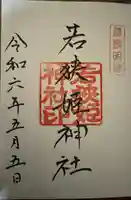 若狭姫神社
若狭姫
神社印
令和六年五月五日